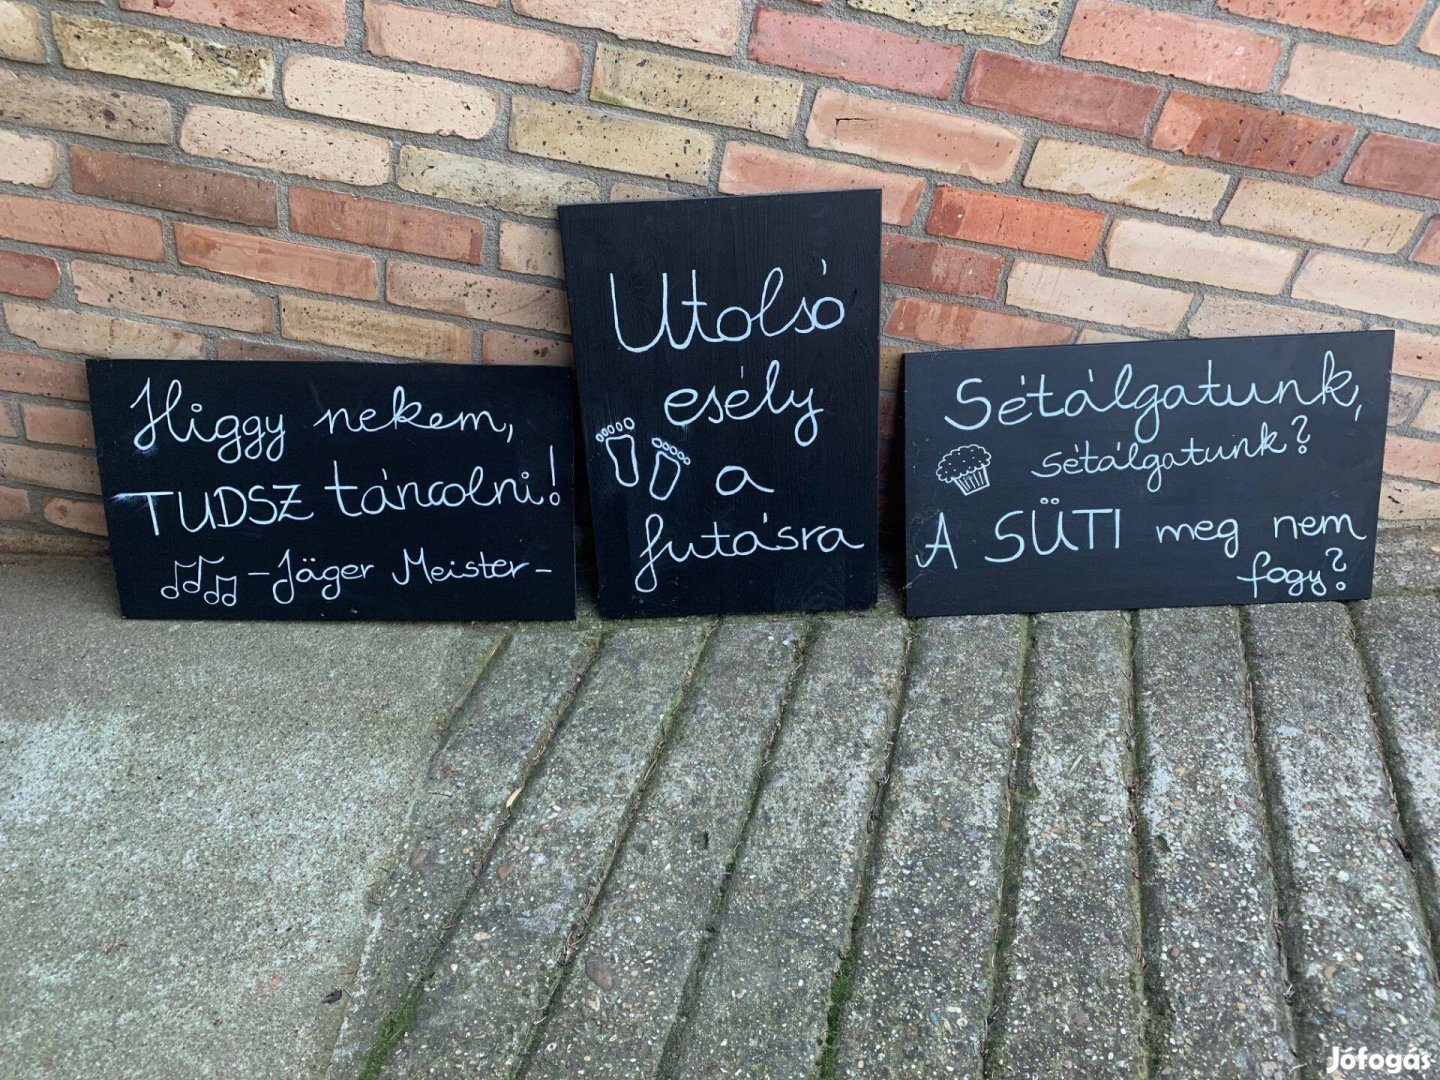 Higgy nekem,
TUDSZ táncolni!
-Jäger Meister-
Utolsó
esély
a
futásra
Sétálgatunk,
sétálgatunk?
A SÜTI meg nem
fogy?
Jófogás